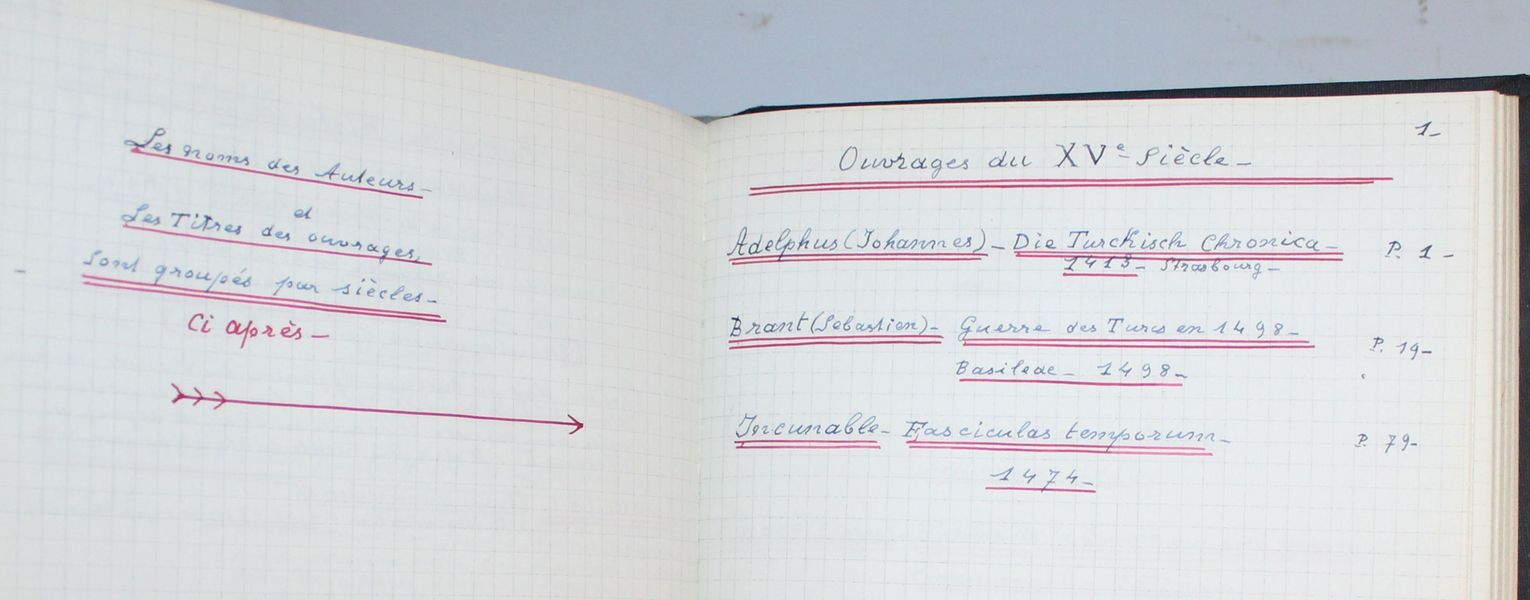 Les noms des Auteurs-
et
Les Titres des ouvrages,
Sont groupés par siècles-
Ci après-
1-
Ouvrages du XVe Siècle-
Adelphus (Johannes)- Die Turckisch Chronica- P. 1-
1413- Strasbourg-
Brant (Sebastien)- Guerre des Turcs en 1498- P. 19-
Basileae- 1498-
Incunable- Fasciculas temporum- P. 79-
1474-